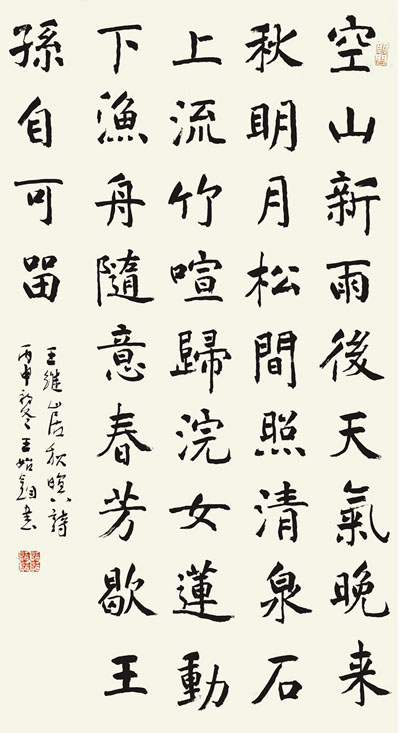 空山新雨後天氣晚来
秋明月松間照清泉石
上流竹喧歸浣女蓮動
下漁舟隨意春芳歇王
孫自可留
王維山居秋暝詩
丙申初冬王書